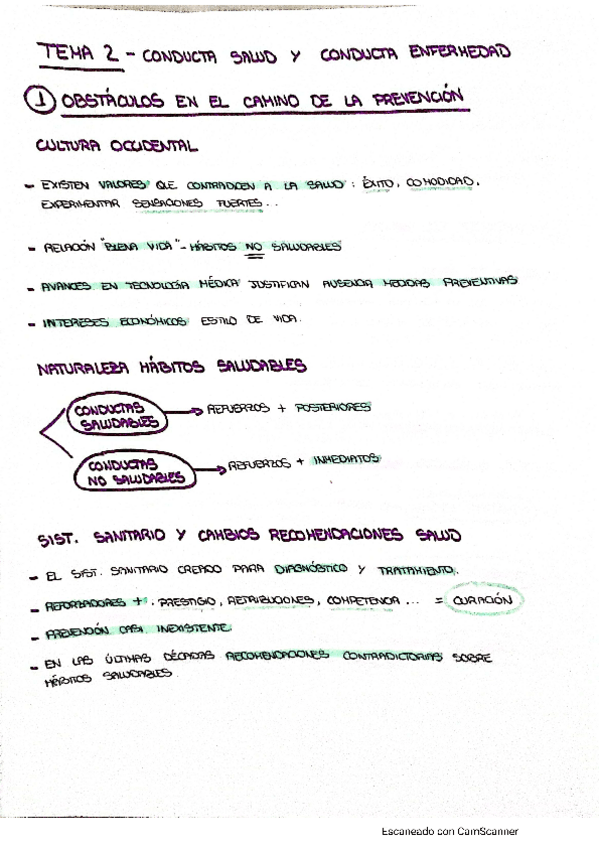 TEMA 2 - CONDUCTA SALUD Y CONDUCTA ENFERMEDAD
1 OBSTÁCULOS EN EL CAMINO DE LA PREVENCIÓN
CULTURA OCCIDENTAL
- EXISTEN VALORES QUE CONTRADICEN A LA SALUD: ÉXITO, COMODIDAD,
EXPERIMENTAR SENSACIONES FUERTES..
- RELACIÓN "BUENA VIDA" - HÁBITOS NO SALUDABLES
- AVANCES EN TECNOLOGÍA MÉDICA JUSTIFICAN AUSENCIA MEDIDAS PREVENTIVAS
- INTERESES ECONÓMICOS ESTILO DE VIDA.
NATURALEZA HÁBITOS SALUDABLES
CONDUCTAS SALUDABLES → REFUERZOS + POSTERIORES
CONDUCTAS NO SALUDABLES → REFUERZOS + INMEDIATOS
SIST. SANITARIO Y CAMBIOS RECOMENDACIONES SALUD
- EL SIST. SANITARIO CREADO PARA DIAGNÓSTICO Y TRATAMIENTO.
- REFORZADORES + : PRESTIGIO, RETRIBUCIONES, COMPETENCIA... = CURACIÓN
- PREVENCIÓN CASI INEXISTENTE.
- EN LAS ÚLTIMAS DÉCADAS RECOMENDACIONES CONTRADICTORIAS SOBRE
HÁBITOS SALUDABLES.
Escaneado con CamScanner